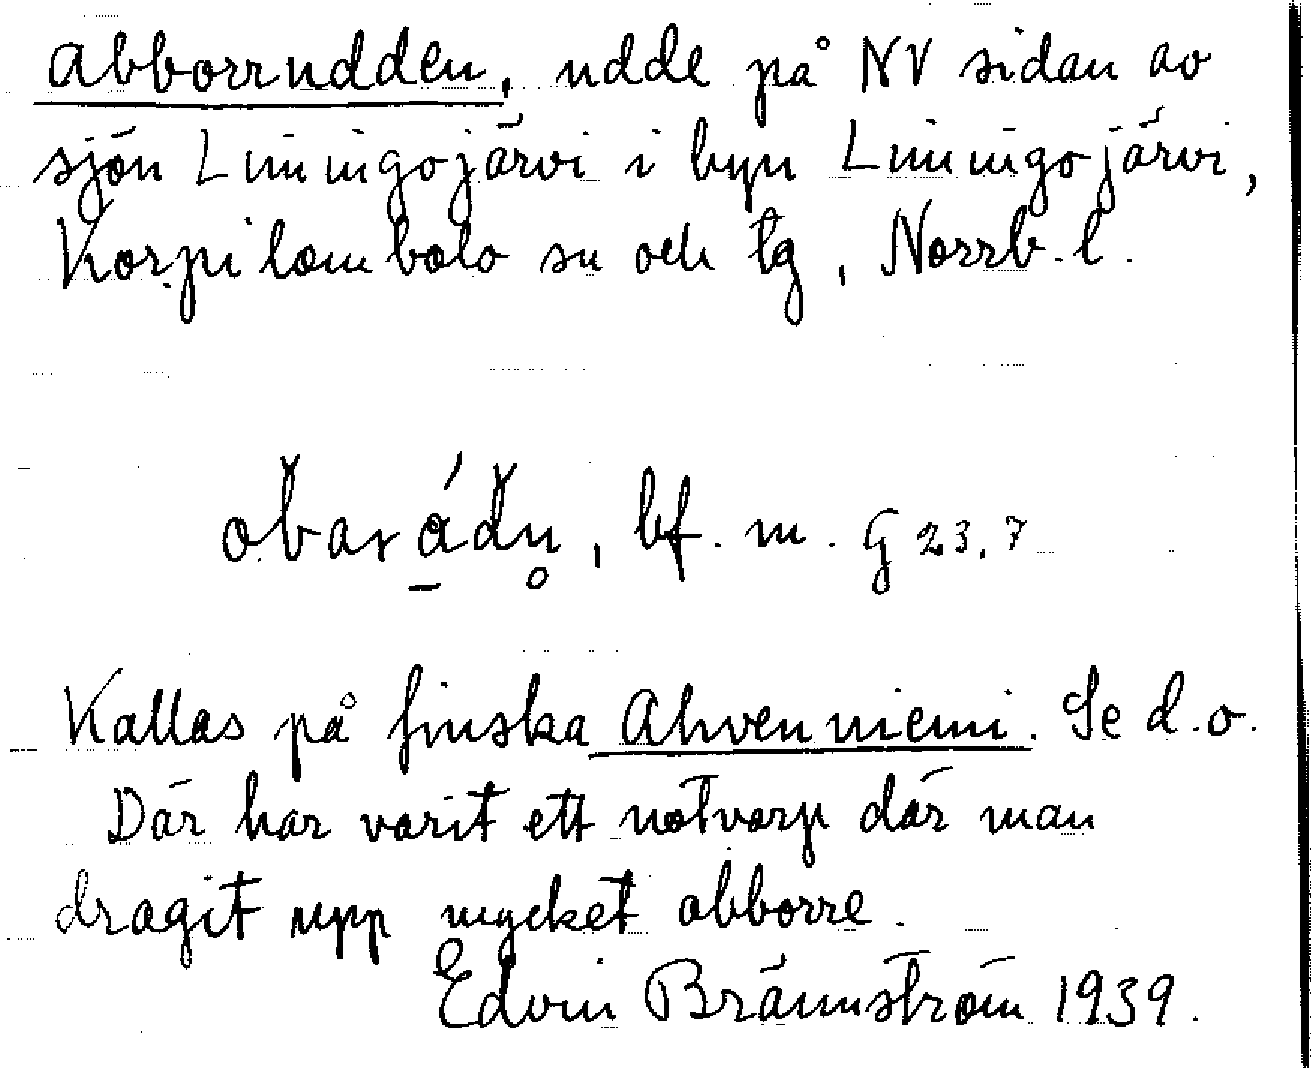 Abborrudden, udde på NV sidan av
sjön Liminigojärvi i byn Liminigojärvi,
Korpilombolo sn och tg, Norrb. l.
bf. m. G 23, 7
Kallas på finska Ahvenniemi. Se d. o.
Där har varit ett notvarp där man
dragit upp mycket abborre.
Edvin Brännström 1939.